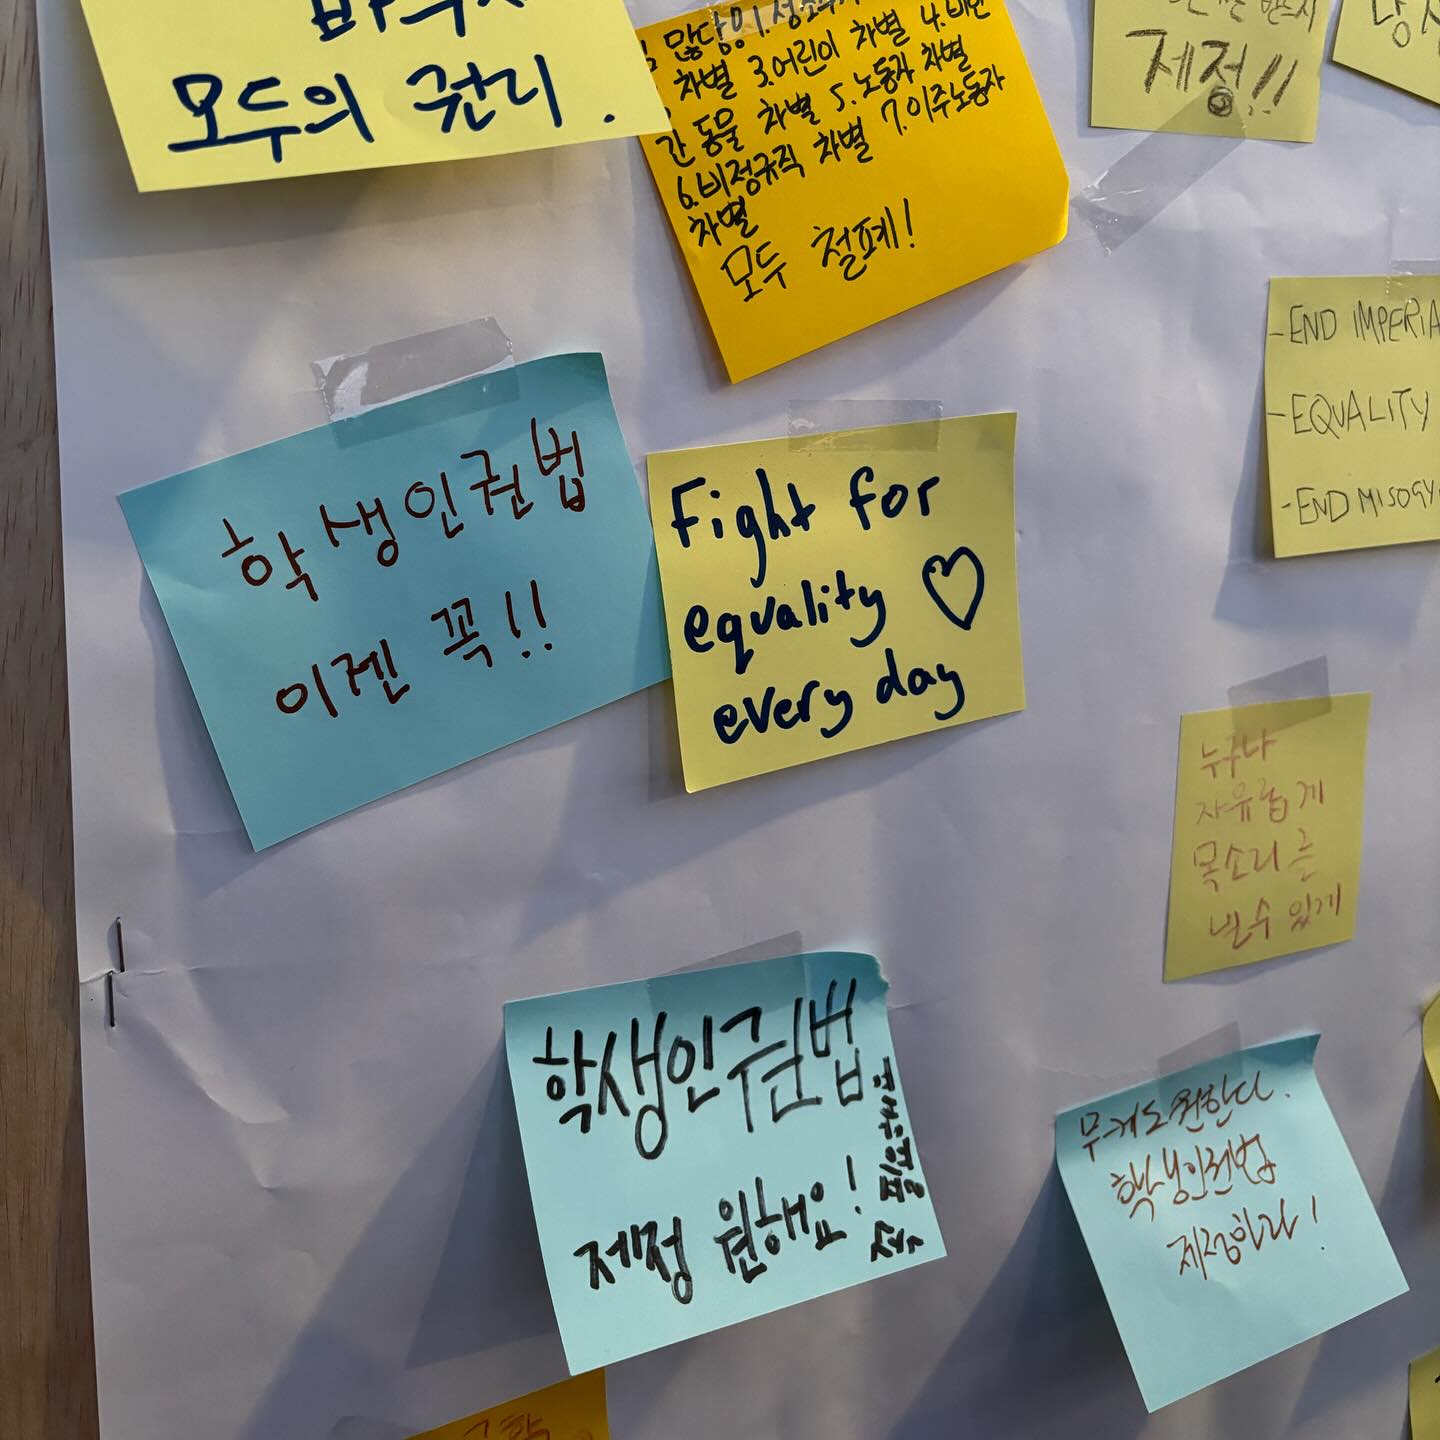 모두의 권리.
많당
차별 3.어린이 차별 4.비인
간 동물 차별 5.노동자 차별
6.비정규직 차별 7.이주노동자
차별
모두 철폐!
제정!!
-END IMPERIA
-EQUALITY
-END MISOGY
학생인권법
이젠 꼭!!
Fight for
equality ♡
every day
누구나
자유롭게
목소리를
낼 수 있게
학생인권법
제정 원해요!
필요해요
무지도 원한다.
학생인권법
제정하라!